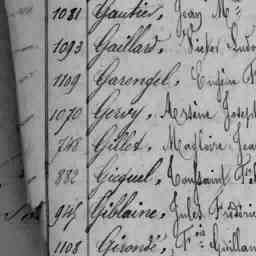 1081 Gautier, Jean M.
1093 Gaillard, Victor Ludo
1109 Garengel, Eugène F
1070 Gervy, Arsène Joseph
748 Gillet, Magloire Jea
882 Gicquel, Toussaint F
945 Giblaine, Jules Frédéric
1108 Girondé, Fois Guillau